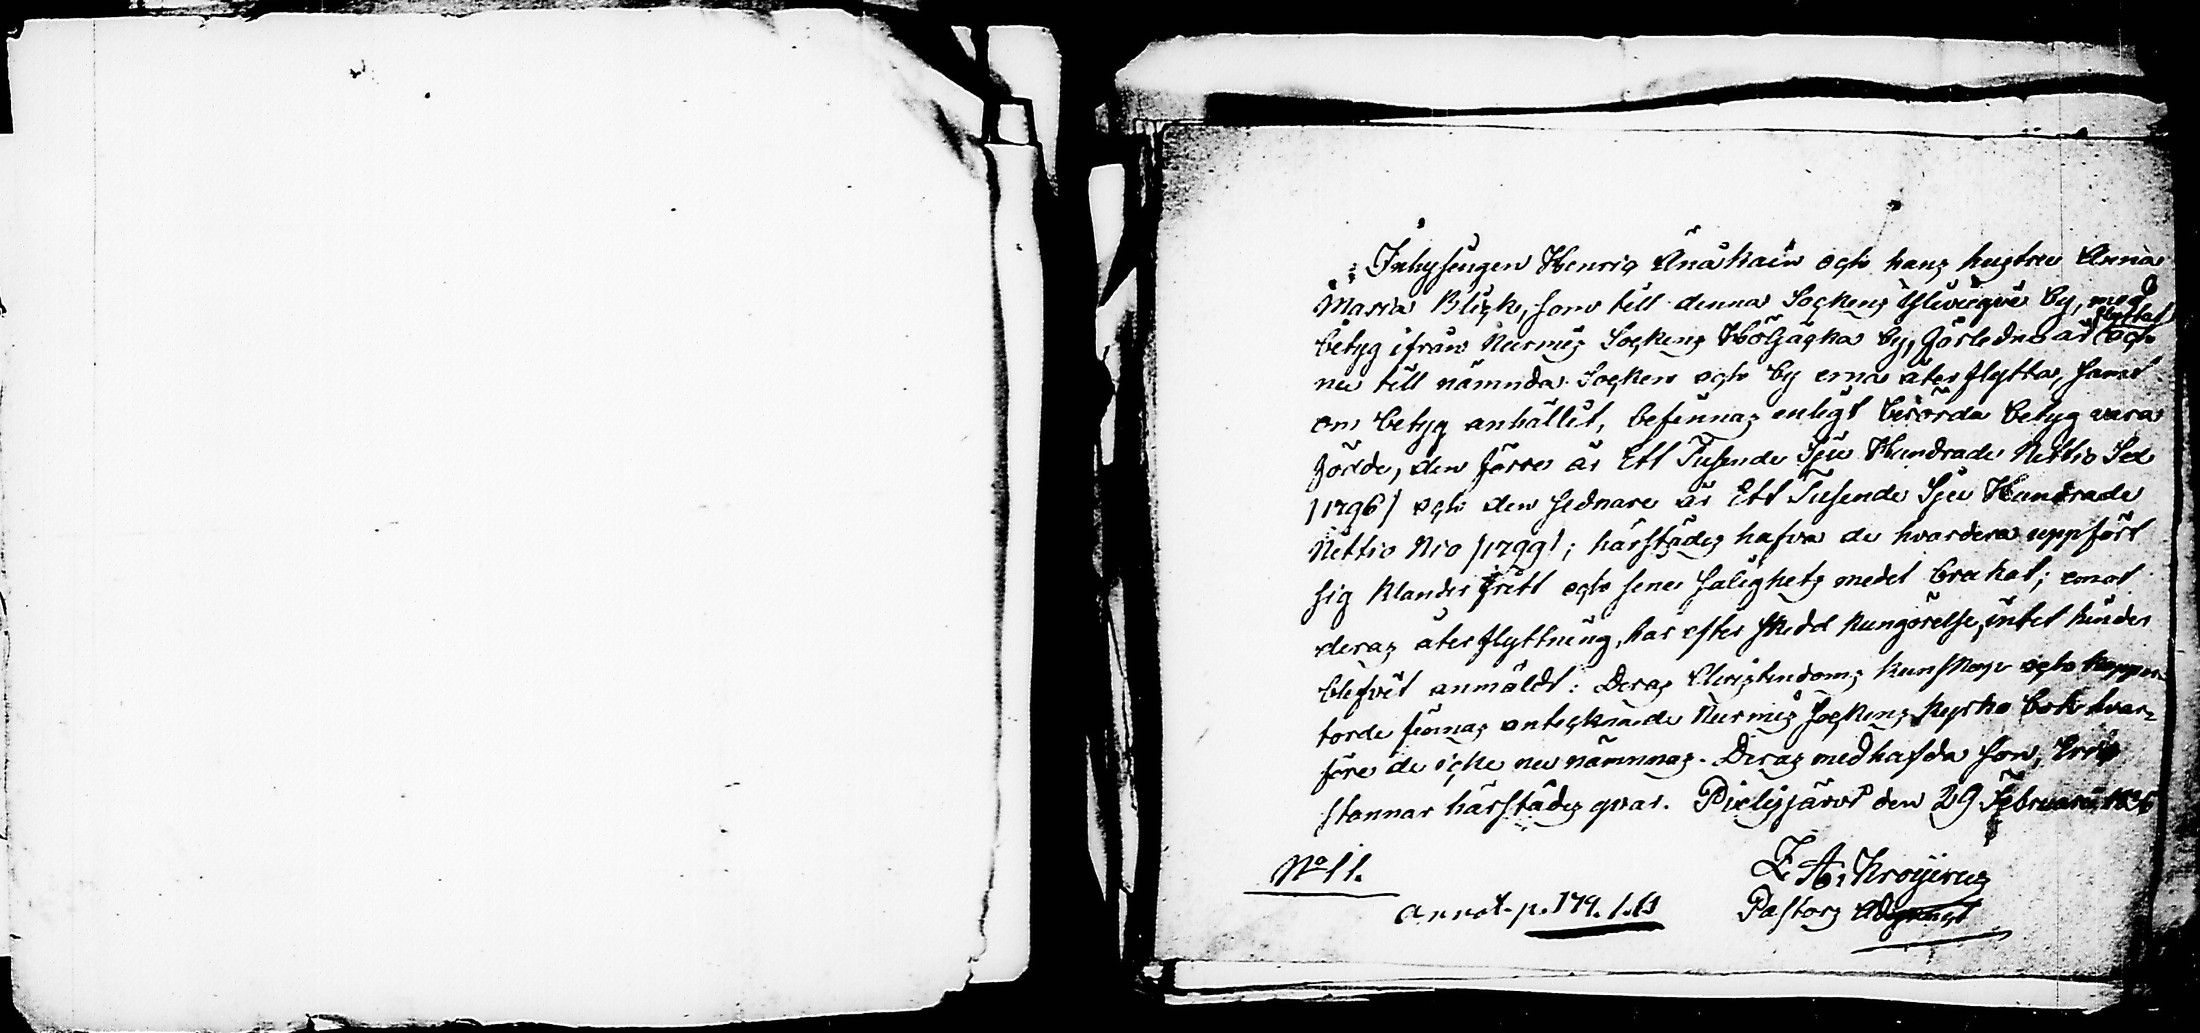 Inhysingen Henric Anáhain och hans hustru Anna
Maria Blick, som till denna Sockens by, med
betyg ifrån Nurmis Sockens Höljäcka by, förledna år flyttat och
nu till nämnda Socken och by ärna återflytta, samt
om betyg anhållit, befinnas enligt berörda betyg vara
födde, den förre år Ett Tusende Sju Hundrade Nittio Sex
/1796/ och den sednare år Ett Tusende Sju Hundrade
Nittio Nio /1799/; härstädes hafva de hvardera uppfört
sig klanderfritt och sine salighets medel brukat; emot
deras återflyttning, har efter skedd kungörelse, intet hinder
blifvit anmäldt: Deras Christendoms kunskap och koppor
torde finnas antecknade Nurmis Sockens kyrko bok hvar-
före de icke nu nämnas. Deras medhafda son, Eric
stannar härstädes qvar. Pielisjärvi den 29 Februarii 1836
No 11.
Z. A. Kroijerus
Annot. p. 179. 1.
Pastors Adjunct